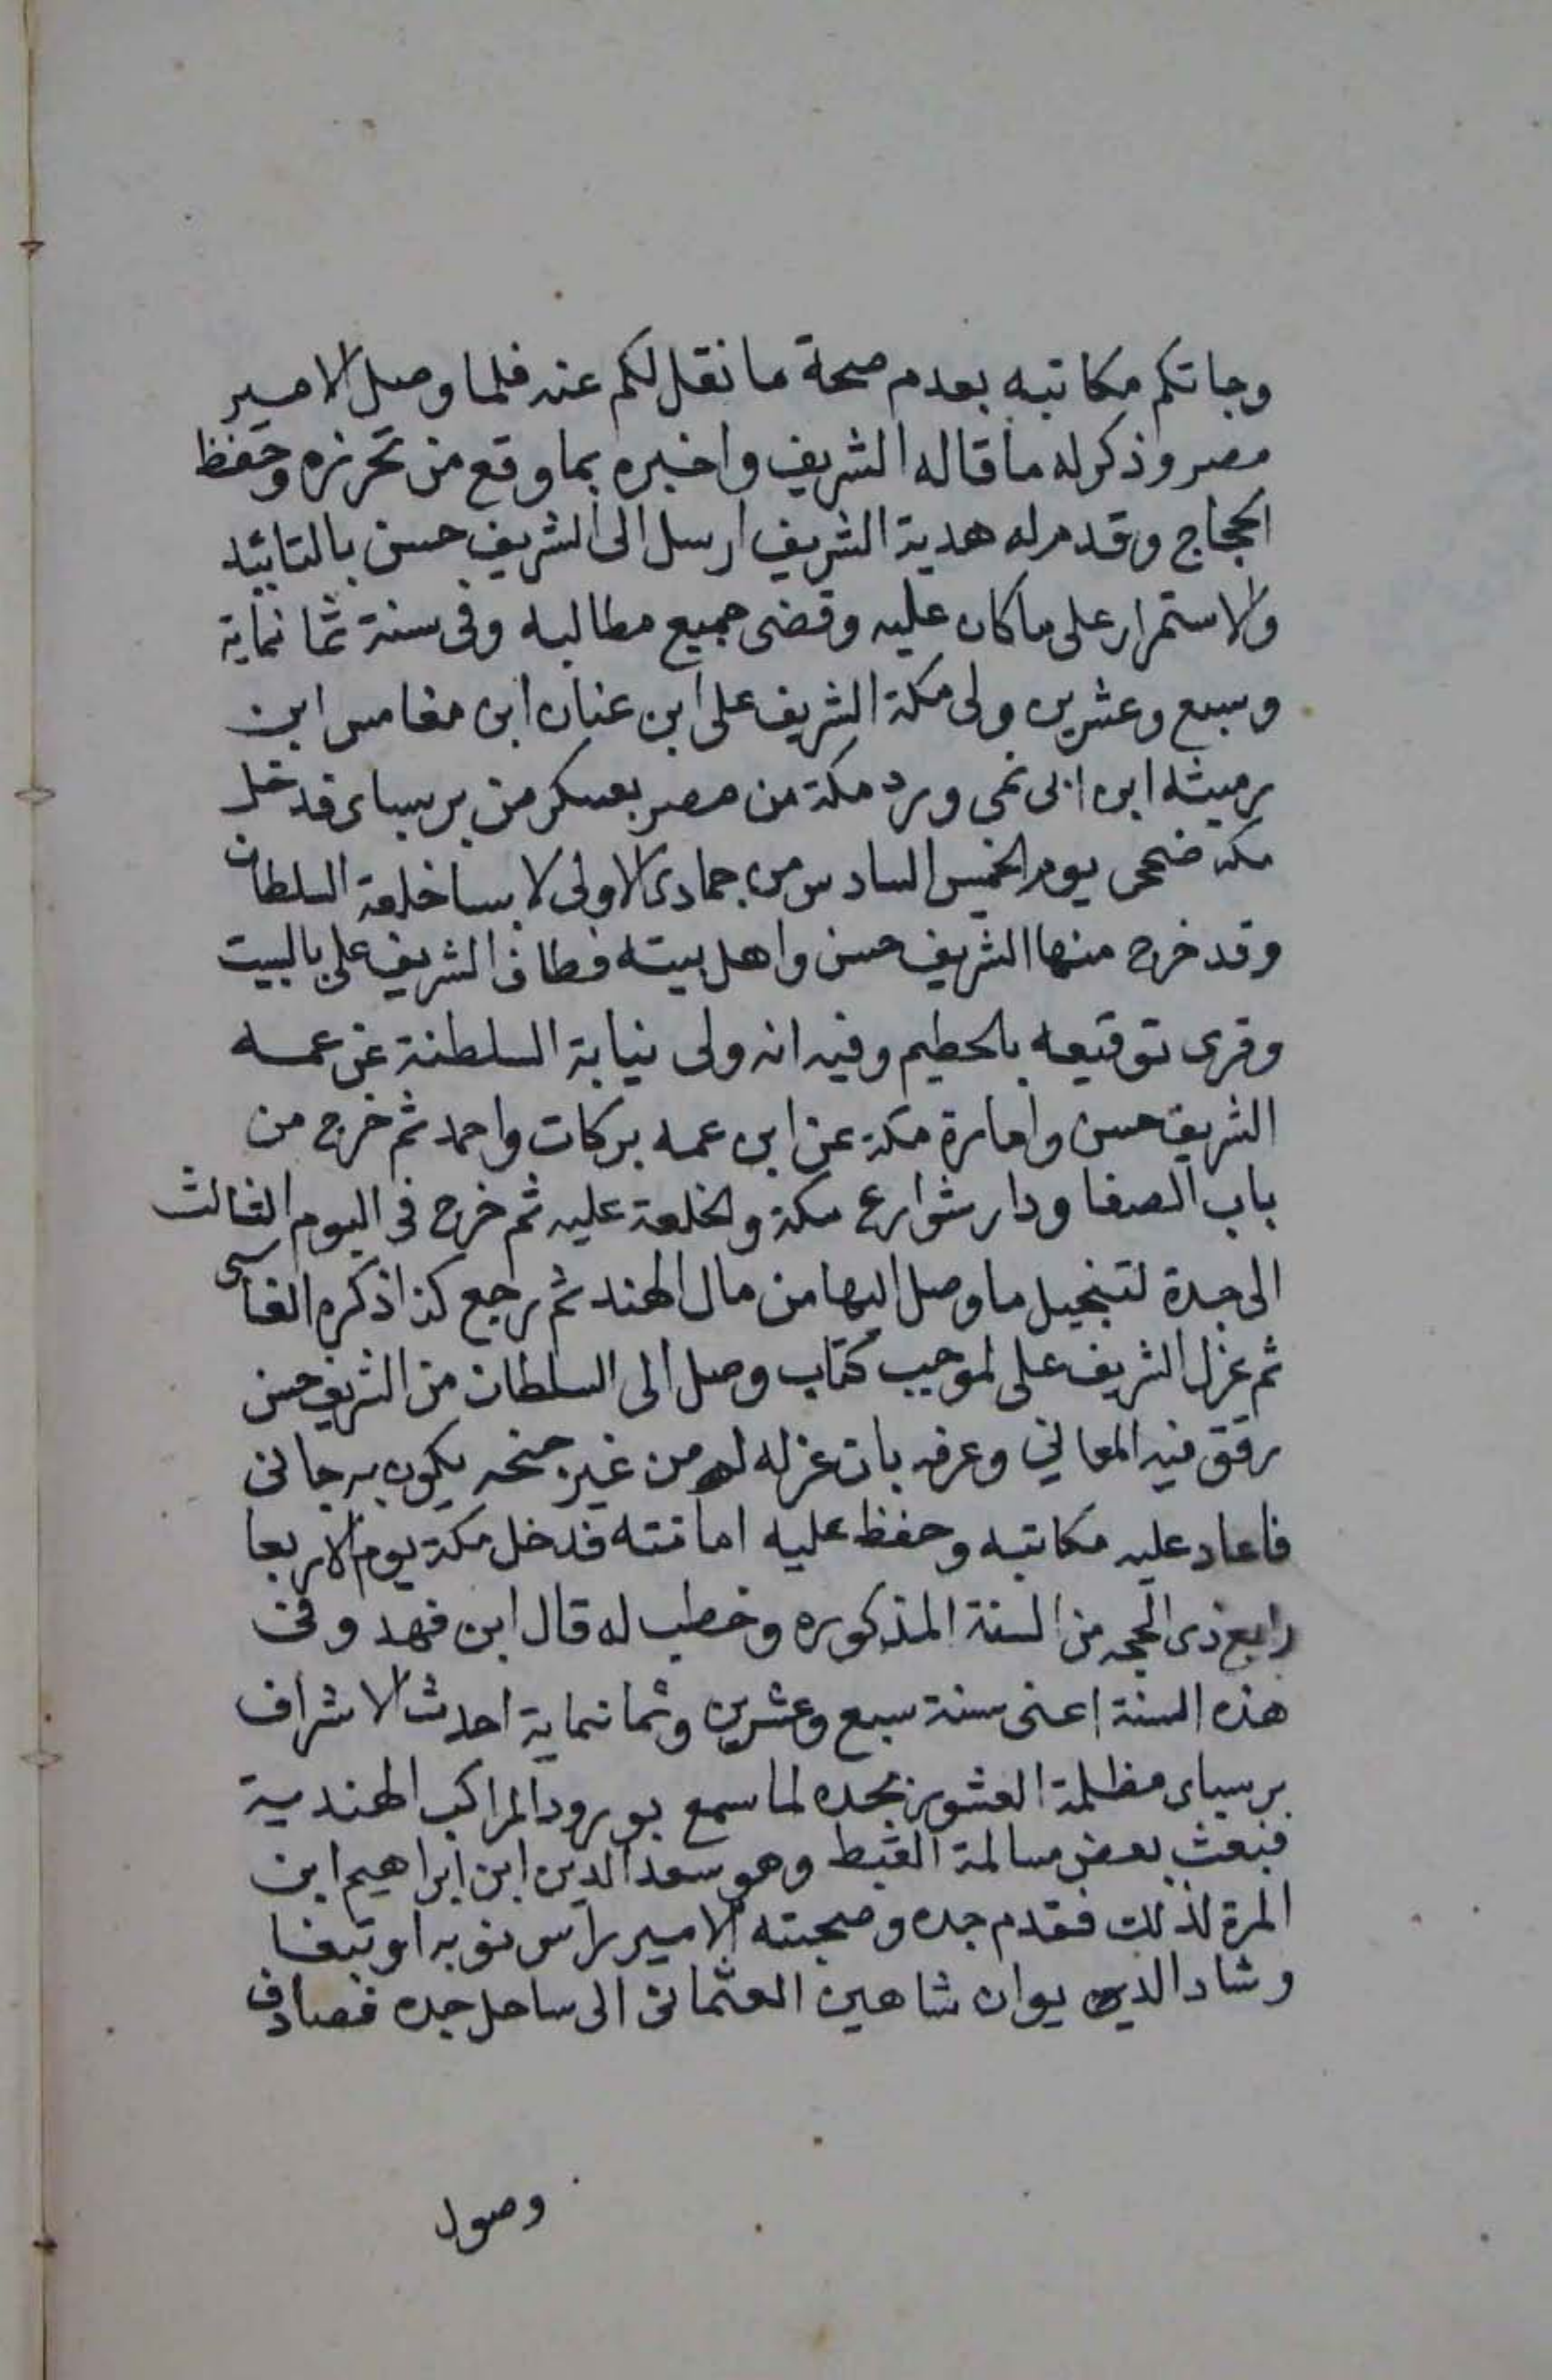 وجاتكم مكاتبه بعدم صحة ما نقل لكم عنه فلما وصل الامير
مصر وذكر له ما قاله الشريف واخبره بما وقع من تحرزه وحفظ
الحجاج وقدم له هدية الشريف ارسل الى الشريف حسن بالتائيد
والاستمرار على ما كان عليه وقضى جميع مطالبه وفى سنة ثمانماية
وسبع وعشرين ولى مكة الشريف على ابن عنان ابن مغامس ابن
رميثه ابن ابى نمى ورد مكة من مصر بعسكر من برسباى فدخل
مكه ضحى يوم الخميس السادس من جمادى الاولى لابسا خلعة السلطان
وقد خرج منها الشريف حسن واهل بيته فطاف الشريف على بالبيت
وقرى توقيعه بالحطيم وفيه انه ولى نيابة السلطنة عن عمه
الشريف حسن وامارة مكة عن ابن عمه بركات واحمد ثم خرج من
باب الصفا ودار شوارع مكة والخلعة عليه ثم خرج فى اليوم الثالث
الى جدة لتنجيل ما وصل اليها من مال الهند ثم رجع كذا ذكره الفاسى
ثم عزل الشريف على لموجب كتاب وصل الى السلطان من الشريف حسن
رقق فيه المعاني وعرفه بان عزله له من غير جنحه يكون به جانى
فاعاد عليه مكاتبه وحفظ عليه امانته فدخل مكة يوم الاربعا
رابع ذى الحجه من السنة المذكوره وخطب له قال ابن فهد وفى
هذه السنة اعنى سنة سبع وعشرين وثمانماية احدث الاشراف
برسباى مظلمة العشور بجده لما سمع بورود المراكب الهندية
فبعث بعض مسالمة القبط وهو سعد الدين ابن ابراهيم ابن
المرة لذلك فقدم جده وصحبته الامير راس نوبه اوتبغا
وشاد الدين يوان شاهين العثمانى الى ساحل جده فصادف
وصول